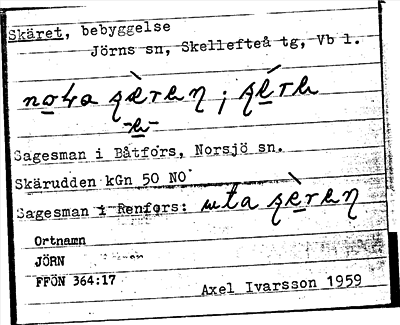 Skäret, bebyggelse
Jörns sn, Skellefteå tg, Vb l.
Sagesman i Båtfors, Norsjö sn.
Skärudden kGn 50 NO
Sagesman i Renfors:
Ortnamn
JÖRN
FFÖN 364:17
Axel Ivarsson 1959